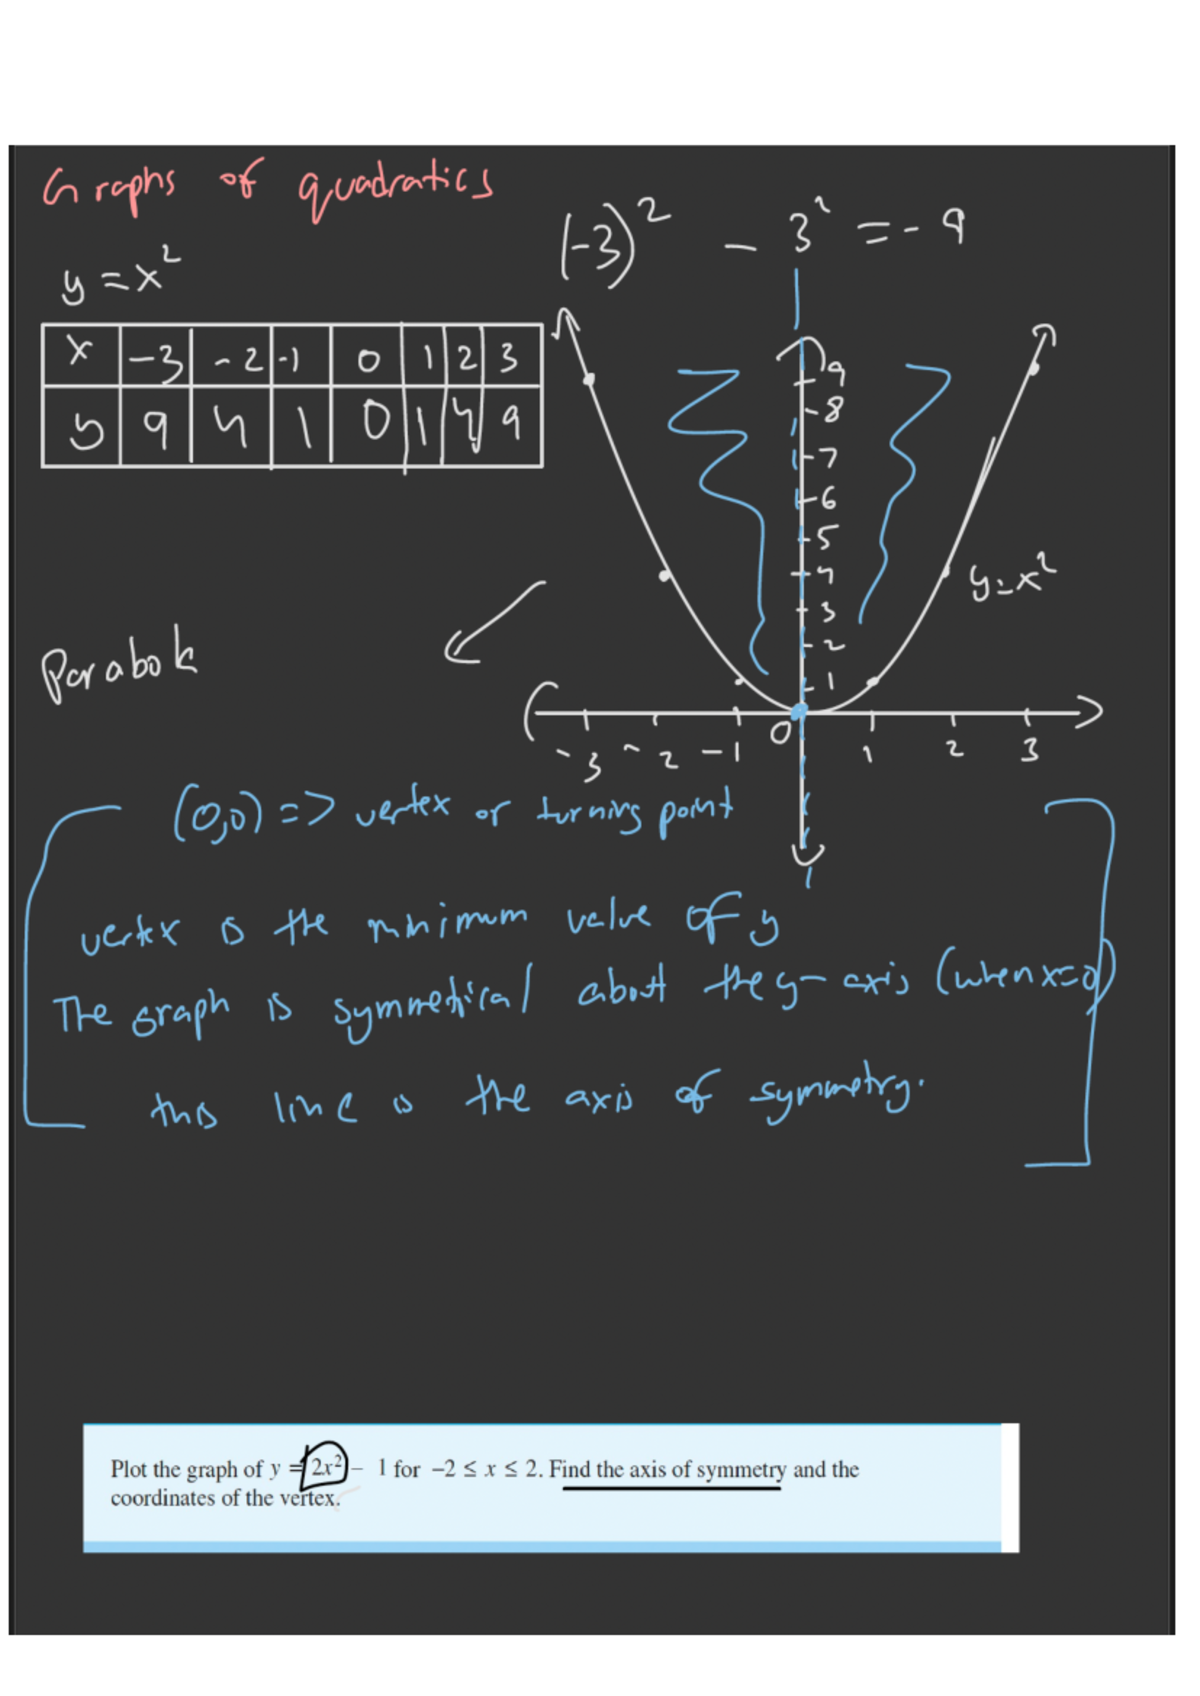 Graphs of quadratics
(-3)² - 3² = - 9
y = x²
x -3 -2 -1 0 1 2 3
y 9 4 1 0 1 4 9
9
8
7
6
5
4
3
2
1
y=x²
Parabola
-3 -2 -1 0 1 2 3
(0,0) => vertex or turning point
vertex is the minimum value of y
The graph is symmetrical about the y-axis (when x=0)
this line is the axis of symmetry.
Plot the graph of y = 2x² – 1 for –2 ≤ x ≤ 2. Find the axis of symmetry and the
coordinates of the vertex.